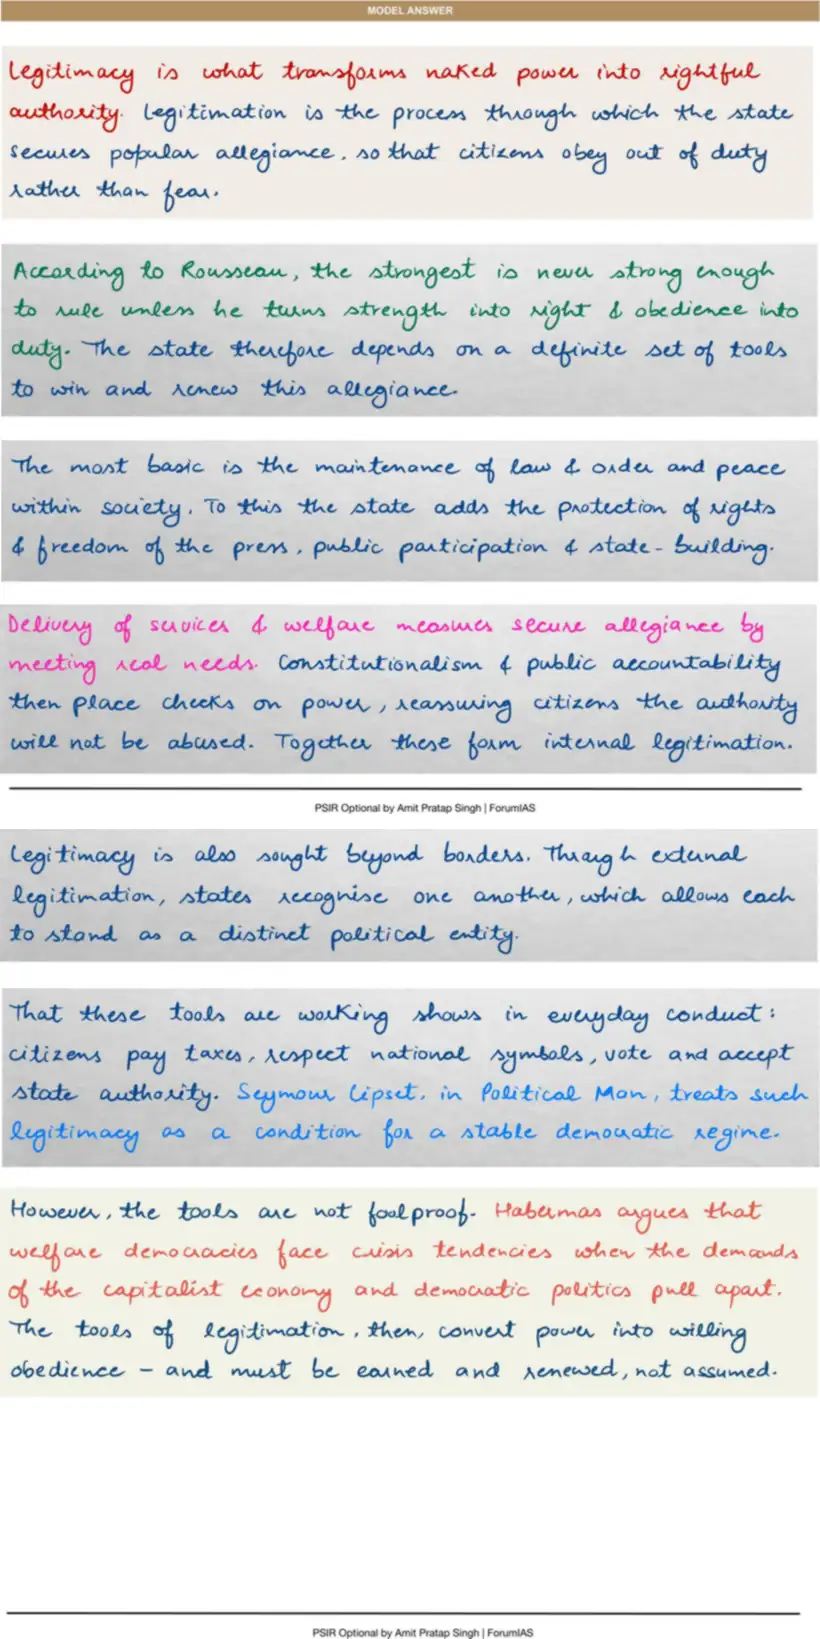 MODEL ANSWER
Legitimacy is what transforms naked power into rightful
authority. Legitimation is the process through which the state
secures popular allegiance, so that citizens obey out of duty
rather than fear.
According to Rousseau, the strongest is never strong enough
to rule unless he turns strength into right & obedience into
duty. The state therefore depends on a definite set of tools
to win and renew this allegiance.
The most basic is the maintenance of law & order and peace
within society. To this the state adds the protection of rights
& freedom of the press, public participation & state-building.
Delivery of services & welfare measures secure allegiance by
meeting real needs. Constitutionalism & public accountability
then place checks on power, reassuring citizens the authority
will not be abused. Together these form internal legitimation.
PSIR Optional by Amit Pratap Singh | ForumIAS
Legitimacy is also sought beyond borders. Through external
legitimation, states recognise one another, which allows each
to stand as a distinct political entity.
That these tools are working shows in everyday conduct:
citizens pay taxes, respect national symbols, vote and accept
state authority. Seymour Lipset, in Political Man, treats such
legitimacy as a condition for a stable democratic regime.
However, the tools are not foolproof. Habermas argues that
welfare democracies face crisis tendencies when the demands
of the capitalist economy and democratic politics pull apart.
The tools of legitimation, then, convert power into willing
obedience – and must be earned and renewed, not assumed.
PSIR Optional by Amit Pratap Singh | ForumIAS